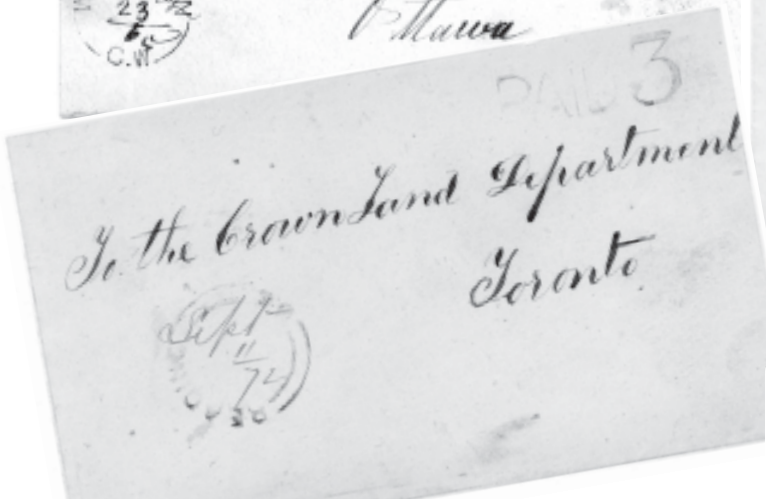 23
C.W.
Ottawa
PAID 3
To the Crown Land Department
Toronto
Sept
11
74